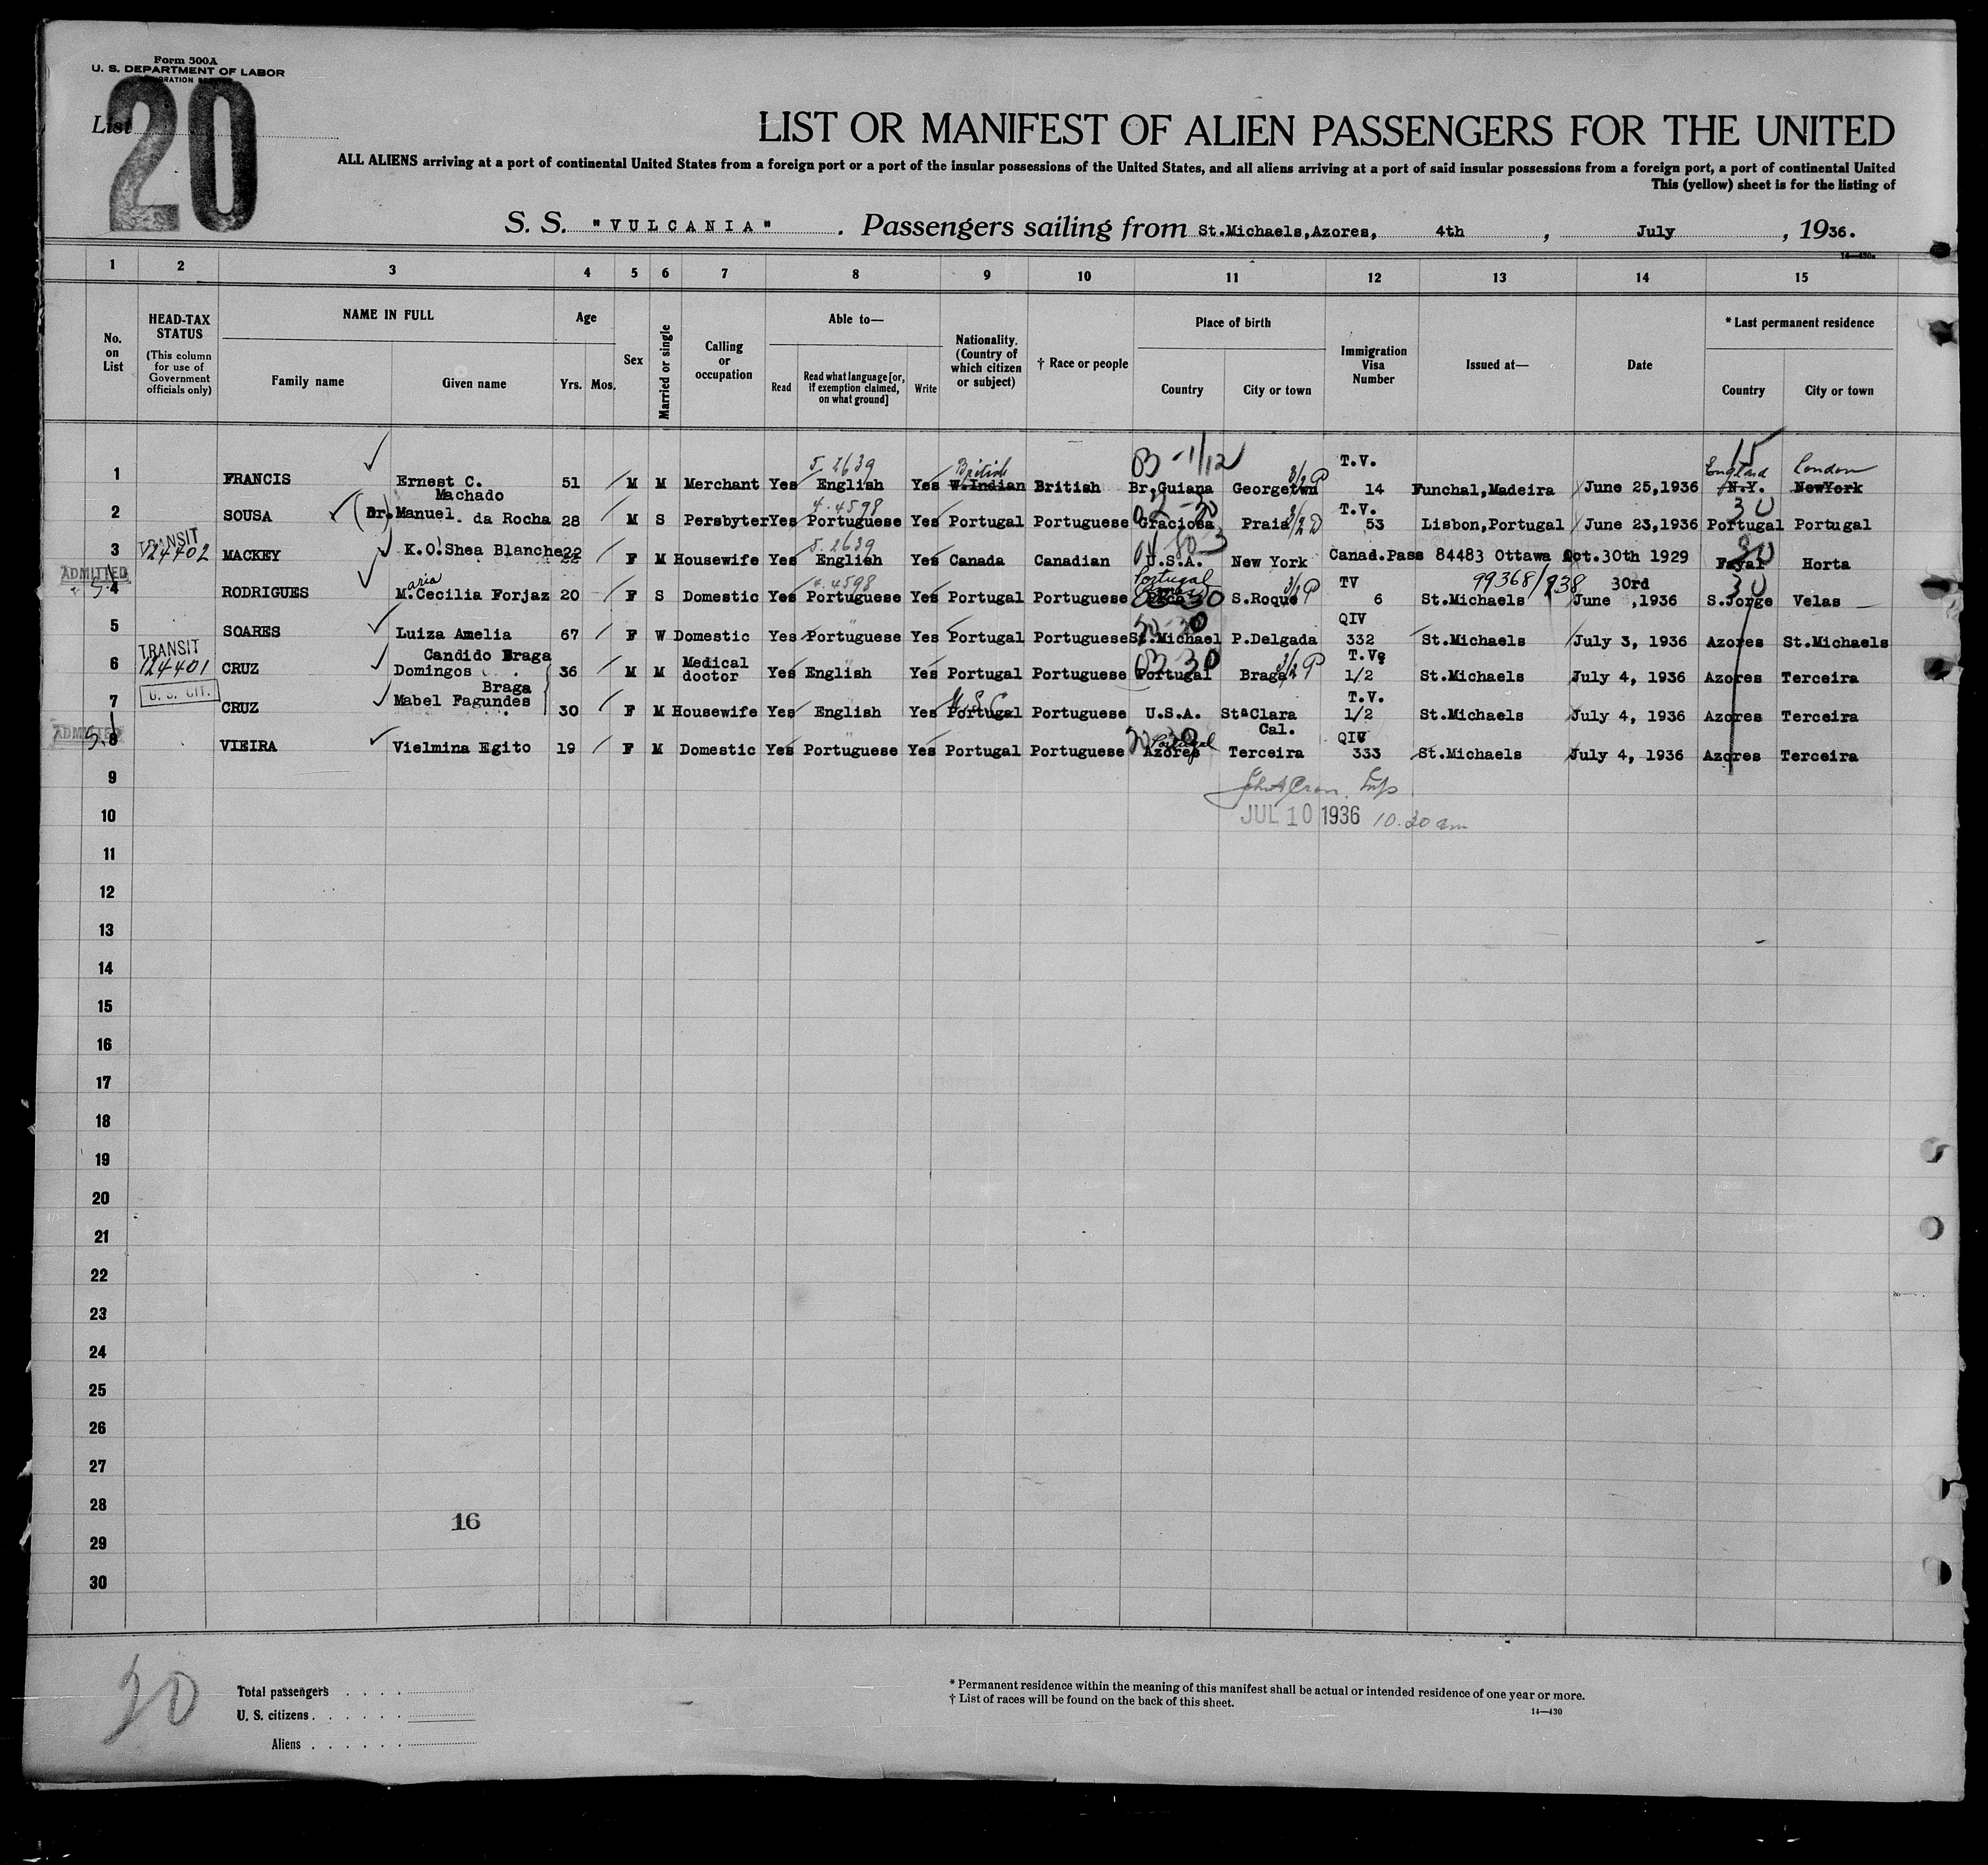 Form 500A
U. S. DEPARTMENT OF LABOR
List 20
LIST OR MANIFEST OF ALIEN PASSENGERS FOR THE UNITED
ALL ALIENS arriving at a port of continental United States from a foreign port or a port of the insular possessions of the United States, and all aliens arriving at a port of said insular possessions from a foreign port, a port of continental United
This (yellow) sheet is for the listing of
S. S. "VULCANIA". Passengers sailing from St.Michaels,Azores, 4th, July, 1936.
1 2 3 4 5 6 7 8 9 10 11 12 13 14 15
No. on List
HEAD-TAX STATUS (This column for use of Government officials only)
NAME IN FULL
Family name
Given name
Age
Yrs. Mos.
Sex
Married or single
Calling or occupation
Able to—
Read
Read what language [or, if exemption claimed, on what ground]
Write
Nationality. (Country of which citizen or subject)
† Race or people
Place of birth
Country
City or town
Immigration Visa Number
Issued at—
Date
* Last permanent residence
Country
City or town
5.2639 British T.V. 15 England London
1 FRANCIS Ernest C. 51 M M Merchant Yes English Yes W.Indian British Br,Guiana Georgetwn 14 Funchal,Madeira June 25,1936 N.Y. NewYork
Machado 4.4598 T.V. 30
2 SOUSA (Dr.) Manuel. da Rocha 28 M S Persbyter Yes Portuguese Yes Portugal Portuguese Graciosa Praia 53 Lisbon,Portugal June 23,1936 Portugal Portugal
TRANSIT 5.2639
3 124402 MACKEY K.O.Shea Blanche 22 F M Housewife Yes English Yes Canada Canadian U.S.A. New York Canad.Pass 84483 Ottawa Oct.30th 1929 Fayal Horta
ADMITTED aria 4.4598 Portugal TV 99368/938 30rd 30
4 RODRIGUES M.Cecilia Forjaz 20 F S Domestic Yes Portuguese Yes Portugal Portuguese S.Roque 6 St.Michaels June ,1936 S.Jorge Velas
QIV
5 SOARES Luiza Amelia 67 F W Domestic Yes Portuguese Yes Portugal Portuguese St.Michael P.Delgada 332 St.Michaels July 3, 1936 Azores St.Michaels
TRANSIT Candido Braga T.V.
6 124401 CRUZ Domingos 36 M M Medical doctor Yes English Yes Portugal Portuguese Portugal Braga 1/2 St.Michaels July 4, 1936 Azores Terceira
U. S. CIT. Braga U.S.C. T.V.
7 CRUZ Mabel Fagundes 30 F M Housewife Yes English Yes Portugal Portuguese U.S.A. StaClara Cal. 1/2 St.Michaels July 4, 1936 Azores Terceira
ADMITTED Portugal QIV
8 VIEIRA Vielmina Egito 19 F M Domestic Yes Portuguese Yes Portugal Portuguese Azores Terceira 333 St.Michaels July 4, 1936 Azores Terceira
9
10 JUL 10 1936 10.20 am
11
12
13
14
15
16
17
18
19
20
21
22
23
24
25
26
27
28
16
29
30
20
Total passengers
U. S. citizens
Aliens
* Permanent residence within the meaning of this manifest shall be actual or intended residence of one year or more.
† List of races will be found on the back of this sheet.
14—430